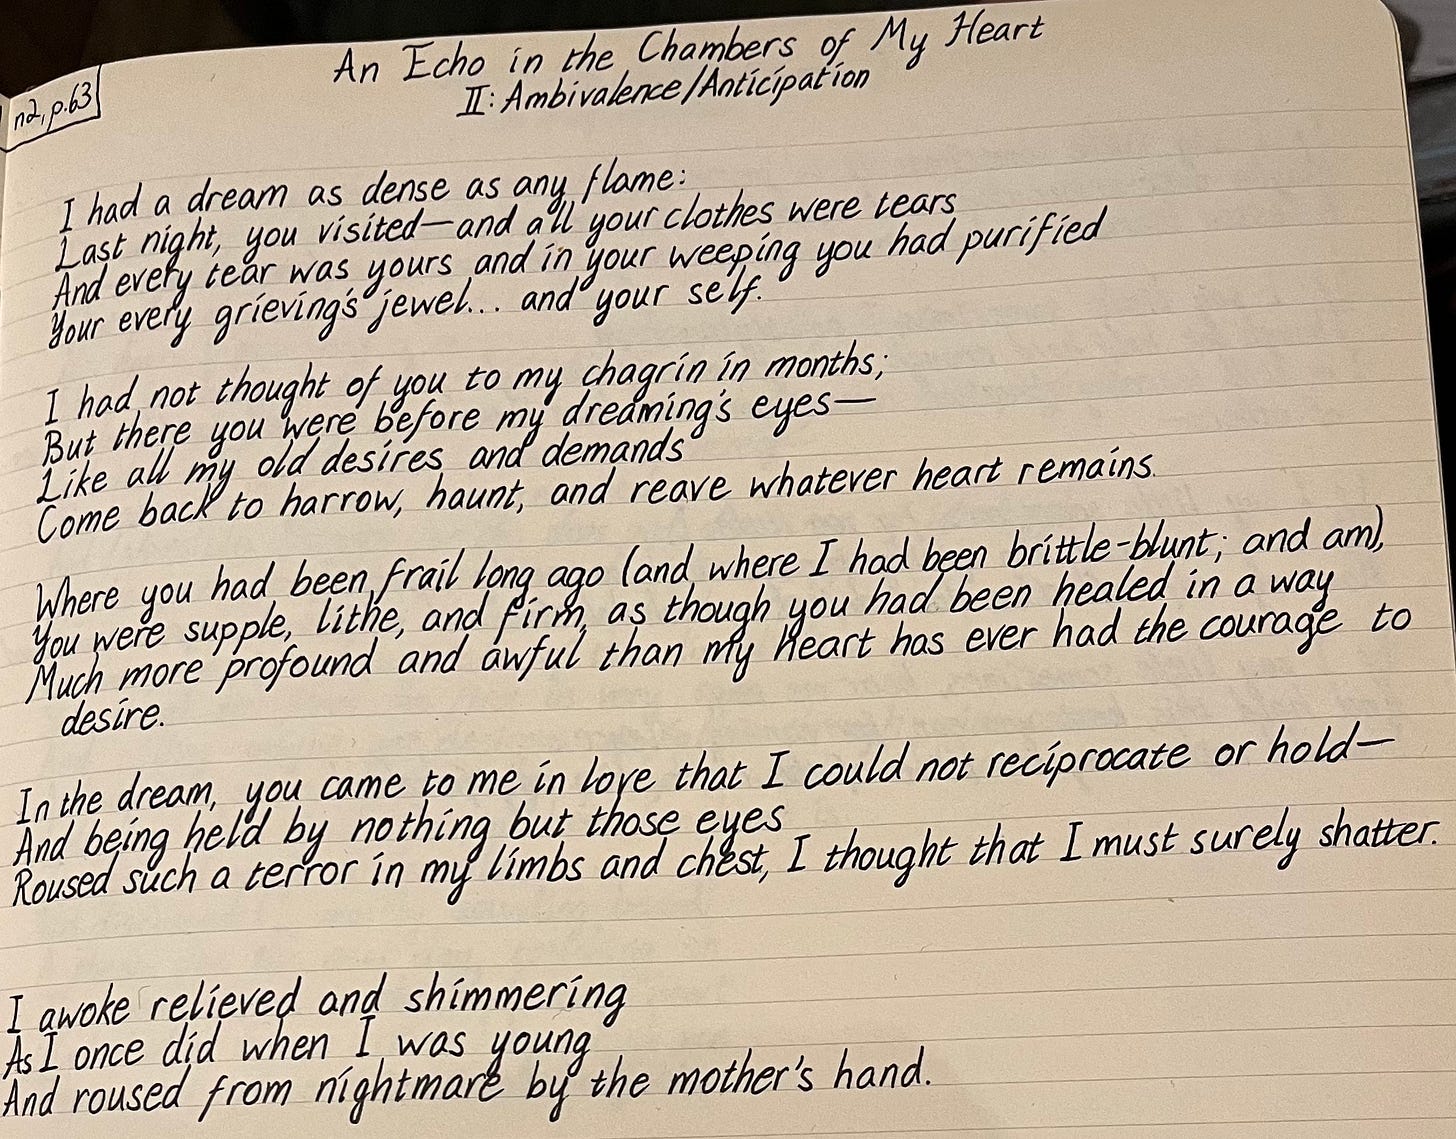 An Echo in the Chambers of My Heart
II: Ambivalence/Anticipation
n2, p.63
I had a dream as dense as any flame:
Last night, you visited—and all your clothes were tears
And every tear was yours and in your weeping you had purified
Your every grieving's jewel... and your self.
I had not thought of you to my chagrin in months;
But there you were before my dreaming's eyes—
Like all my old desires and demands
Come back to harrow, haunt, and reave whatever heart remains.
Where you had been frail long ago (and where I had been brittle-blunt; and am),
You were supple, lithe, and firm, as though you had been healed in a way
Much more profound and awful than my heart has ever had the courage to
desire.
In the dream, you came to me in love that I could not reciprocate or hold—
And being held by nothing but those eyes
Roused such a terror in my limbs and chest, I thought that I must surely shatter.
I awoke relieved and shimmering
As I once did when I was young
And roused from nightmare by the mother's hand.